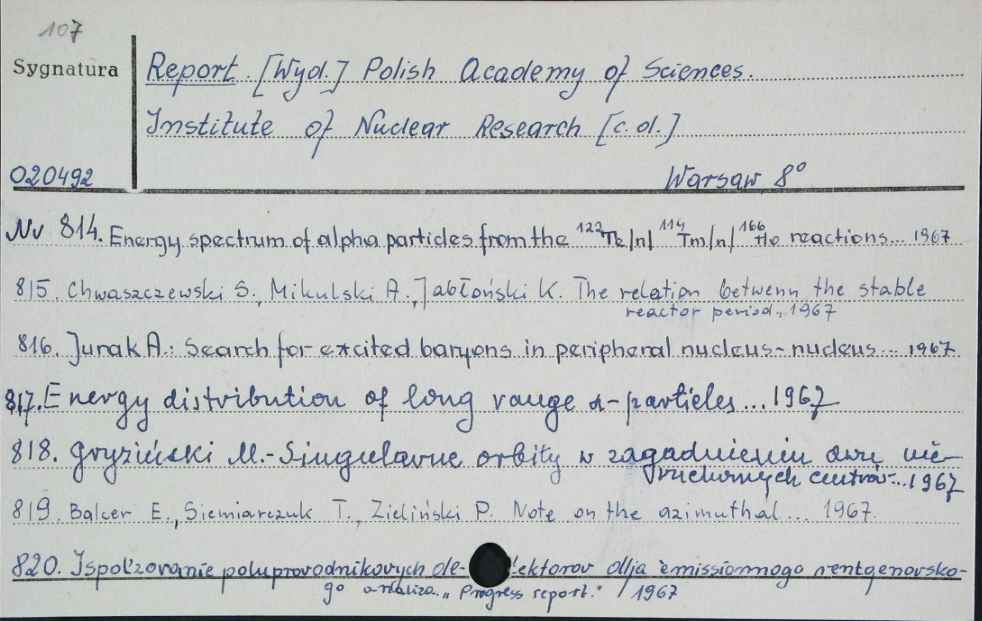 107
Sygnatura
Report. [Wyd.] Polish Academy of Sciences.
Institute of Nuclear Research [c.d.]
020492
Warsaw 8°
Nr 814. Energy spectrum of alpha particles from the 122Te/n/ 114Tm/n/ 166Ho reactions... 1967
815. Chwaszczewski S., Mikulski A., Jabłoński K. The relation betwenn the stable
reactor period, 1967
816. Jurak A.: Search for excited baryons in peripheral nucleus-nucleus... 1967.
817. Energy distribution of long range α-particles... 1967
818. Gryziński M.-Singularne orbity w zagadnieniu dwu nie-
ruchomych centrów... 1967
819. Balcer E., Siemiarczuk T., Zieliński P. Note on the azimuthal... 1967.
820. Ispol'zovanie poluprovodnikovych de-tektorov dlja emissionnogo rentgenovsko-
go analiza. "Progress report." 1967